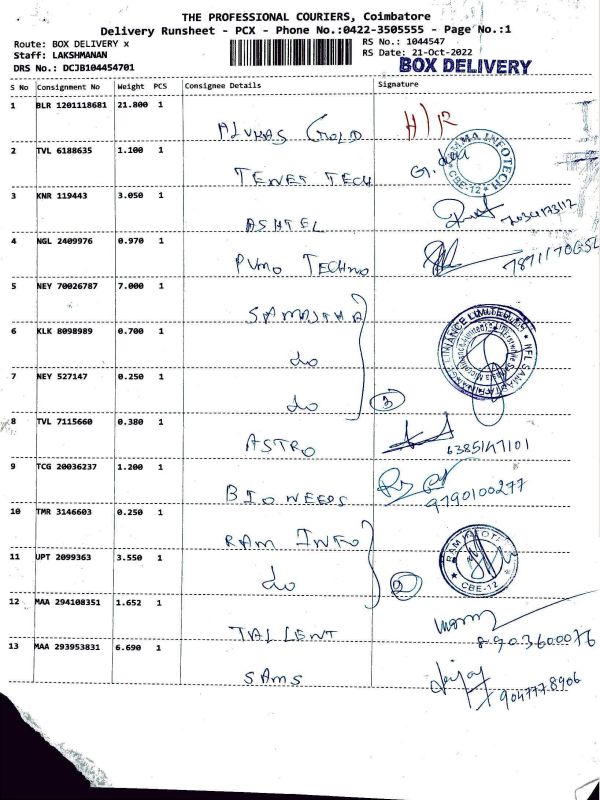 THE PROFESSIONAL COURIERS, Coimbatore
Delivery Runsheet - PCX - Phone No.:0422-3505555 - Page No.:1
Route: BOX DELIVERY x
RS No.: 1044547
Staff: LAKSHMANAN
RS Date: 21-Oct-2022
DRS No.: DCJB104454701
BOX DELIVERY
S No Consignment No Weight PCS Consignee Details Signature
1 BLR 1201118681 21.800 1
H/R
2 TVL 6188635 1.100 1
TENET TECH
INFOTECH
CBE-12
3 KNR 119443 3.050 1
ASHTEL
4 NGL 2409976 0.970 1
TECHNO
5 NEY 70026787 7.000 1
6 KLK 8098989 0.700 1
do
7 NEY 527147 0.250 1
do
3
8 TVL 7115660 0.380 1
ASTRO
6385147101
9 TCG 20036237 1.200 1
BIONEEDS
9790100277
10 TMR 3146603 0.250 1
RAM INFO
11 UPT 2099363 3.550 1
do
2
RAM INFOTE
CBE-12
12 MAA 294108351 1.652 1
TALLENT
8903600076
13 MAA 293953831 6.690 1
SAMS
9047778906